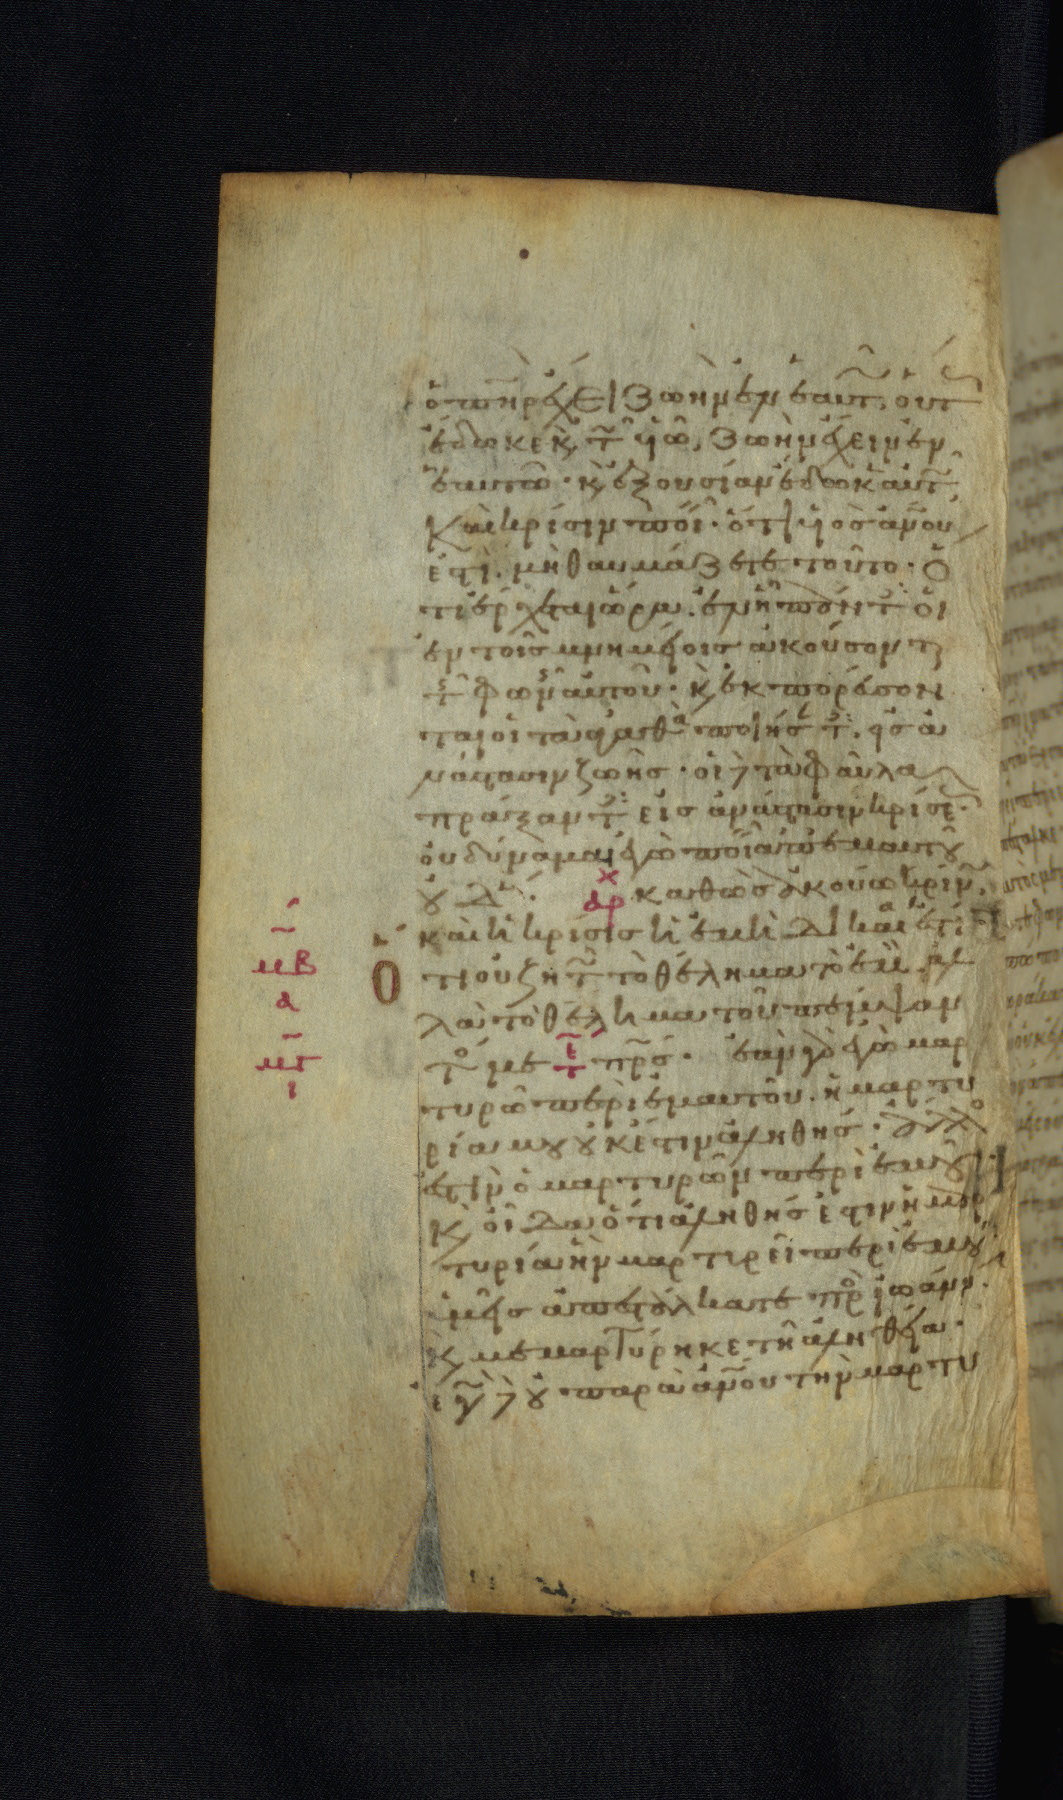 ὁ πηρ ἔχει ζωὴν ἐν ἑαυτ, οὕτ
ἔδωκε κ τ υἱῶ, ζωὴν ἔχειν ἐν
ἑαυτῶ· κ ἐξουσίαν ἔδωκ αὐτ
καὶ κρίσιν ποι· ὅτι υἱὸς ἀνου
ἐστὶ. μὴ θαυμάζετε τοῦτο· ὅ
τι ἔρχεται ὥρα. ἐν ἧ πάντ οἱ
ἐν τοῖς μνημείοις ἀκούσοντ
τ φων αὐτοῦ· κ ἐκπορεύσον
ται οἱ τὰ ἀγαθὰ ποιήσ τ. εἰς ἀ
νάστασιν ζωῆς· οἱ δὲ τὰ φαῦλα
πράξαντ εἰς ἀνάστασιν κρίσε·
οὐ δύναμαι ἐγὼ ποι ἀπ ἐμαυτου
ουδ· αρχ καθὼς ἀκούω κρίν,
καὶ ἡ κρίσις ἡ ἐμὴ δικαι ἐστὶ
μβ
α
ὅ
τι οὐ ζητ τὸ θέλημα τὸ ἐμ ἀλ
λὰ τὸ θέλημα τοῦ πέμψαν
μγ
ι
το με τε πρς· ἐὰν ἐγὼ μαρ
τυρῶ περὶ ἐμαυτοῦ. ἡ μαρτυ
ρία μου οὐκ ἔστιν ἀληθής· ἄλλο
ἐστὶν ὁ μαρτυρῶν περὶ ἐμου·
κ οἶδα ὅτι ἀληθής ἐστιν ἡ μαρ
τυρία ἣν μαρτυρεῖ περὶ ἐμου
ὑμεῖς ἀπεστάλκατε προ ἰωάνν·
κ μεμαρτύρηκε τῆ ἀληθεία·
ἐγ δὲ οὐ παρὰ ἀνου τὴν μαρτυ